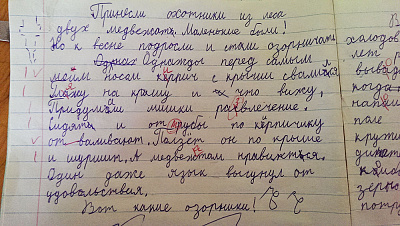 Принесли охотники из леса
двух медвежат. Маленькие были!
Но к весне подросли и стали озорничать.
Однажды перед самым
моим носом кирпич с крыши свалился.
Лезу на крышу и что вижу,
Придумали мишки развлечение.
Сидят и от трубы по кирпичику
отваливают. Ползёт он по крыше
и шуршит. А медвежатам нравится.
Один даже язык высунул от
удовольствия.
Вот какие озорники!
холодов
лет
вывод
когда
напи
поле
кружи
дит
зерно
потру